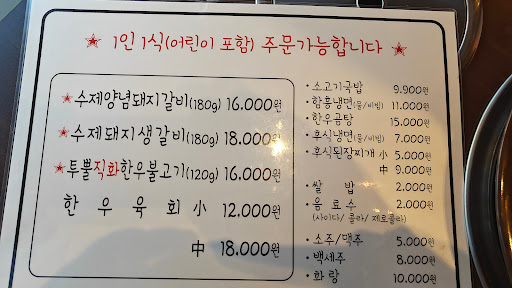 ★ 1인 1식(어린이 포함) 주문가능합니다 ★
★수제양념돼지갈비(180g) 16.000원
★수제돼지생갈비(180g) 18.000원
★투뿔직화한우불고기(120g) 16.000원
한우육회 小 12.000원
中 18.000원
• 소고기국밥 9.900원
• 함흥냉면(물/비빔) 11.000원
• 한우곰탕 15.000원
• 후식냉면(물/비빔) 7.000원
• 후식된장찌개 小 5.000원
中 9.000원
• 쌀밥 2.000원
• 음료수 2.000원
(사이다/콜라/제로콜라)
• 소주/맥주 5.000원
• 백세주 8.000원
• 화랑 10.000원